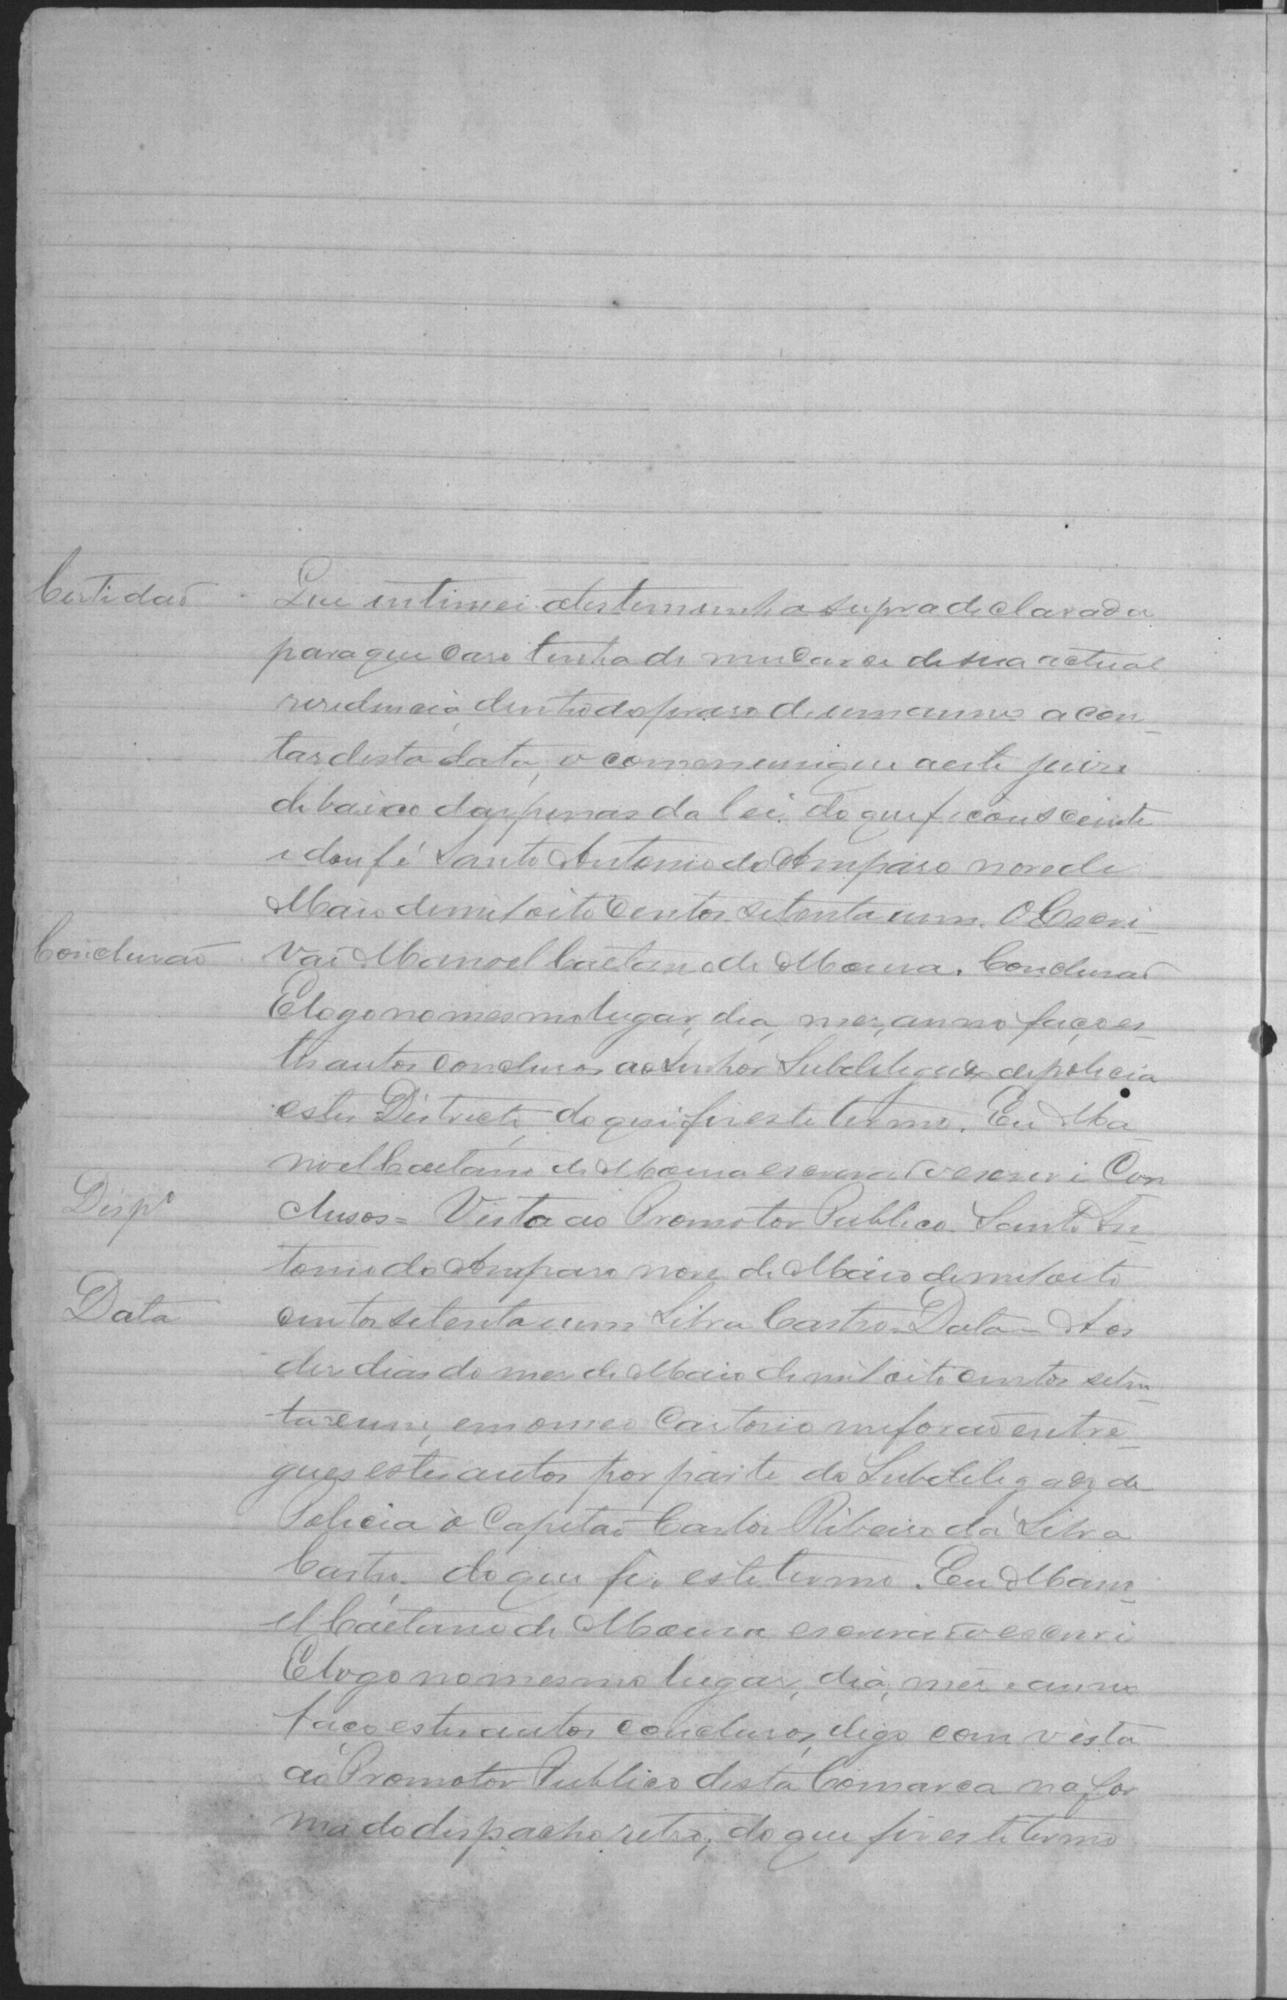 Certidaõ
Que intimei atestemunha supra declarada
para que caso tenha de mudarse de sua actual
residencia, dentro do praso de um anno a con-
tar desta data, o communique a este juiso
debaixo das penas da lei. do que ficou sciente
e dou fé Santo Antonio do Amparo nove de
Maio de mil oito centos setenta um. O Escri-
Concluzaõ
vaõ Manoel Caetano de Moura. Concluzaõ
E logo no mesmo lugar, dia, mez, anno faço es-
tes autos concluzos ao Senhor Subdelegado de policia
estes Districto, do que fis este termo. Eu Ma-
noel Caetano de Moura escrivaõ o escrevi Con
Disp.º
clusos = Vista ao Promotor Publico. Santo An-
tonio do Amparo nove de Maio de mil oito
Data
centos setenta um Silva Castro. Data = Aos
dez dias do mez de Maio de mil oito centos seten-
ta e um, em o meo Cartorio me foraõ entre-
gues estes autos por parte do Subdelegado de
Policia o Capitaõ Carlos Ribeiro da Silva
Castro. do que fiz este termo. Eu Mano-
el Caetano de Moura escrivaõ o escrevi
E logo no mesmo lugar, dia, mez e anno
faço estes autos concluzos, digo com vista
ao Promotor Publico desta Comarca na for
ma do despacho retro, do que fis este termo